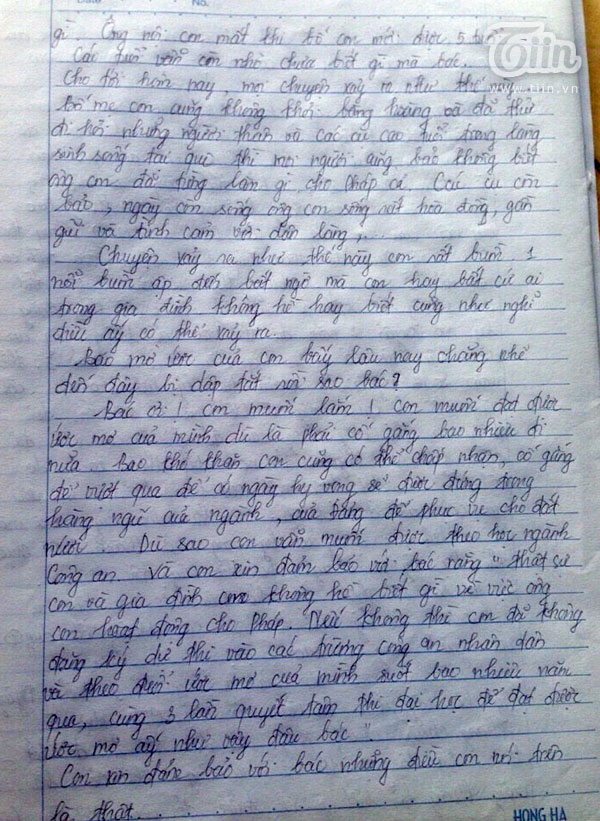 Date No.
gì. Ông nội con mất khi bố con mới được 5 tuổi
Cái tuổi vẫn còn nhỏ chưa biết gì mà bác.
Tiin
www.tiin.vn
Cho tới hôm nay, mọi chuyện xảy ra như thế
bố mẹ con cũng không khỏi bàng hoàng và đã thử
đi hỏi những người thân và các cụ cao tuổi trong làng
sinh sống tại quê thì mọi người cũng bảo không biết
ông con đã từng làm gì cho Pháp cả. Các cụ còn
bảo, ngày còn sống ông con sống rất hòa đồng, gần
gũi và tình cảm với dân làng,...
Chuyện xảy ra như thế này con rất buồn. 1
nỗi buồn ập đến bất ngờ mà con hay bất cứ ai
trong gia đình không hề hay biết cũng như nghĩ
điều ấy có thể xảy ra.
Bao mơ ước của con bấy lâu nay chẳng nhẽ
đến đây bị dập tắt rồi sao bác?
Bác ơi! con muốn lắm! con muốn đạt được
ước mơ của mình dù là phải cố gắng bao nhiêu đi
nữa. Bao khó khăn con cũng có thể chấp nhận, cố gắng
để vượt qua để có ngày hy vọng sẽ được đứng trong
hàng ngũ của ngành, của Đảng để phục vụ cho đất
nước. Dù sao con vẫn muốn được theo học ngành
Công an. Và con xin đảm bảo với bác rằng "thật sự
con và gia đình con không hề biết gì về việc ông
con hoạt động cho Pháp. Nếu không thì con đã không
đăng ký dự thi vào các trường công an nhân dân
và theo đuổi ước mơ của mình suốt bao nhiêu năm
qua, cùng 3 lần quyết tâm thi đại học để đạt được
ước mơ ấy như vậy đâu bác"
Con xin đảm bảo với bác những điều con nói trên
là thật.
HONG HA